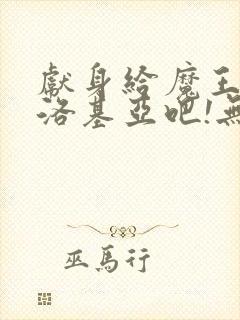 獻身給魔王
洛基亞吧!無
巫馬行